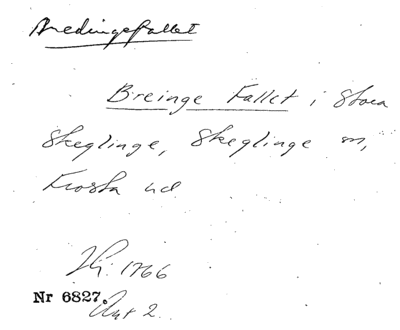 Bredingefallet
Breinge Fallet i Stora
Skeglinge, Skeglinge sn,
Frosta hd
1766
Nr 6827.
Akt 2.